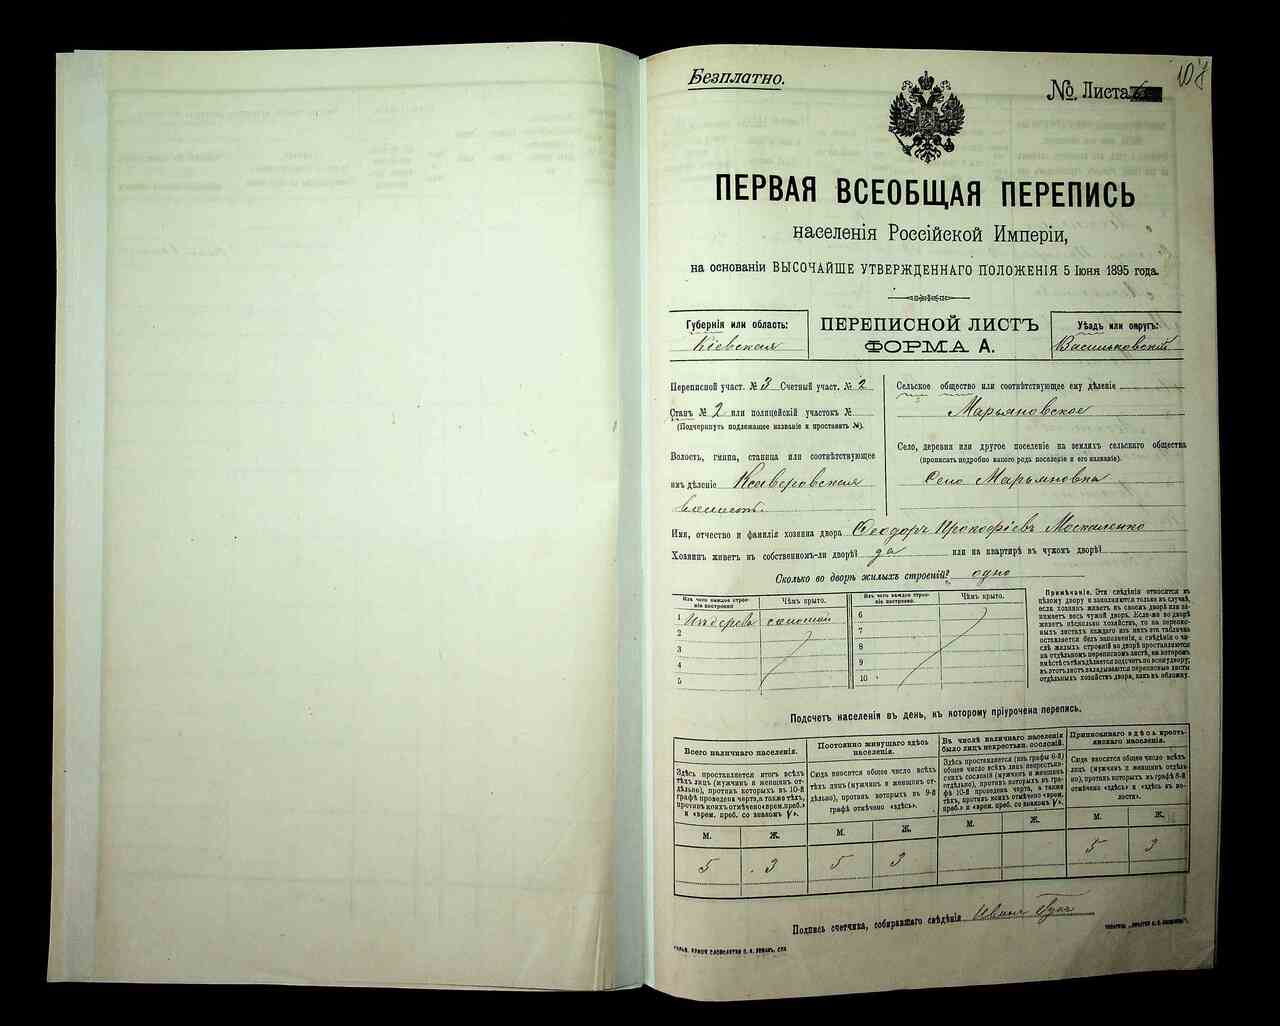 Безплатно.
№ Листа
107
ПЕРВАЯ ВСЕОБЩАЯ ПЕРЕПИСЬ
населенія Россійской Имперіи,
на основаніи ВЫСОЧАЙШЕ УТВЕРЖДЕННАГО ПОЛОЖЕНІЯ 5 Іюня 1895 года.
Губернія или область:
Кіевская
ПЕРЕПИСНОЙ ЛИСТЪ
ФОРМА А.
Уѣздъ или округъ:
Васильковскій
Переписной участ. № 3 Счетный участ. № 2
Станъ № 2 или полицейскій участокъ №
(Подчеркнуть подлежащее названіе и проставить №).
Волость, гмина, станица или соотвѣтствующее
имъ дѣленіе Ксаверовская
волость.
Сельское общество или соотвѣтствующее ему дѣленіе
Марьяновское
Село, деревня или другое поселеніе на земляхъ сельскаго общества
(прописать подробно какого рода поселеніе и его названіе).
Село Марьяновка
Имя, отчество и фамилія хозяина двора Ѳеодоръ Прокофіевъ Москаленко
Хозяинъ живетъ въ собственномъ-ли дворѣ? да или на квартирѣ въ чужомъ дворѣ?
Сколько во дворѣ жилыхъ строеній? одно
Изъ чего каждое строе-
ніе построено
Чѣмъ крыто.
1 Изъ дерева соломой
2
3
4
5
Изъ чего каждое строе-
ніе построено.
Чѣмъ крыто.
6
7
8
9
10
Примѣчаніе. Эти свѣдѣнія относятся къ
цѣлому двору и заполняются только въ случаѣ,
если хозяинъ живетъ въ своемъ дворѣ или за-
нимаетъ весь чужой дворъ. Если-же во дворѣ
живетъ нѣсколько хозяйствъ, то на перепис-
ныхъ листахъ каждаго изъ нихъ эта табличка
оставляется безъ заполненія, а свѣдѣнія о чи-
слѣ жилыхъ строеній во дворѣ проставляются
на отдѣльномъ переписномъ листѣ, на которомъ
вмѣстѣ съ тѣмъ дѣлается подсчетъ по всему двору;
въ этотъ листъ вкладываются переписные листы
отдѣльныхъ хозяйствъ двора, какъ въ обложку.
Подсчетъ населенія въ день, къ которому пріурочена перепись.
Всего наличнаго населенія.
Здѣсь проставляется итогъ всѣхъ
тѣхъ лицъ (мужчинъ и женщинъ от-
дѣльно), противъ которыхъ въ 10-й
графѣ проведена черта, а также тѣхъ,
противъ коихъ отмѣчено «врем. преб.»
и «врем. преб. со знакомъ V».
Постоянно живущаго здѣсь
населенія.
Сюда вносится общее число всѣхъ
тѣхъ лицъ (мужчинъ и женщинъ от-
дѣльно), противъ которыхъ въ 9-й
графѣ отмѣчено «здѣсь».
Въ числѣ наличнаго населенія
было лицъ некрестьян. сословій.
Здѣсь проставляется (изъ графы 6-й)
общее число всѣхъ лицъ некрестьян-
скихъ сословій (мужчинъ и женщинъ
отдѣльно), противъ которыхъ въ гра-
фѣ 10-й проведена черта, а также
тѣхъ, противъ коихъ отмѣчено «врем.
преб.» и «врем. преб. со знакомъ V».
Приписаннаго здѣсь кресть-
янскаго населенія.
Сюда вносится общее число всѣхъ
лицъ (мужчинъ и женщинъ отдѣль-
но), противъ которыхъ въ графѣ 8-й
отмѣчено «здѣсь» и «здѣсь въ во-
лости».
М. Ж. М. Ж. М. Ж. М. Ж.
5 3 5 3 5 3
Подпись счетчика, собиравшаго свѣдѣнія Иванъ